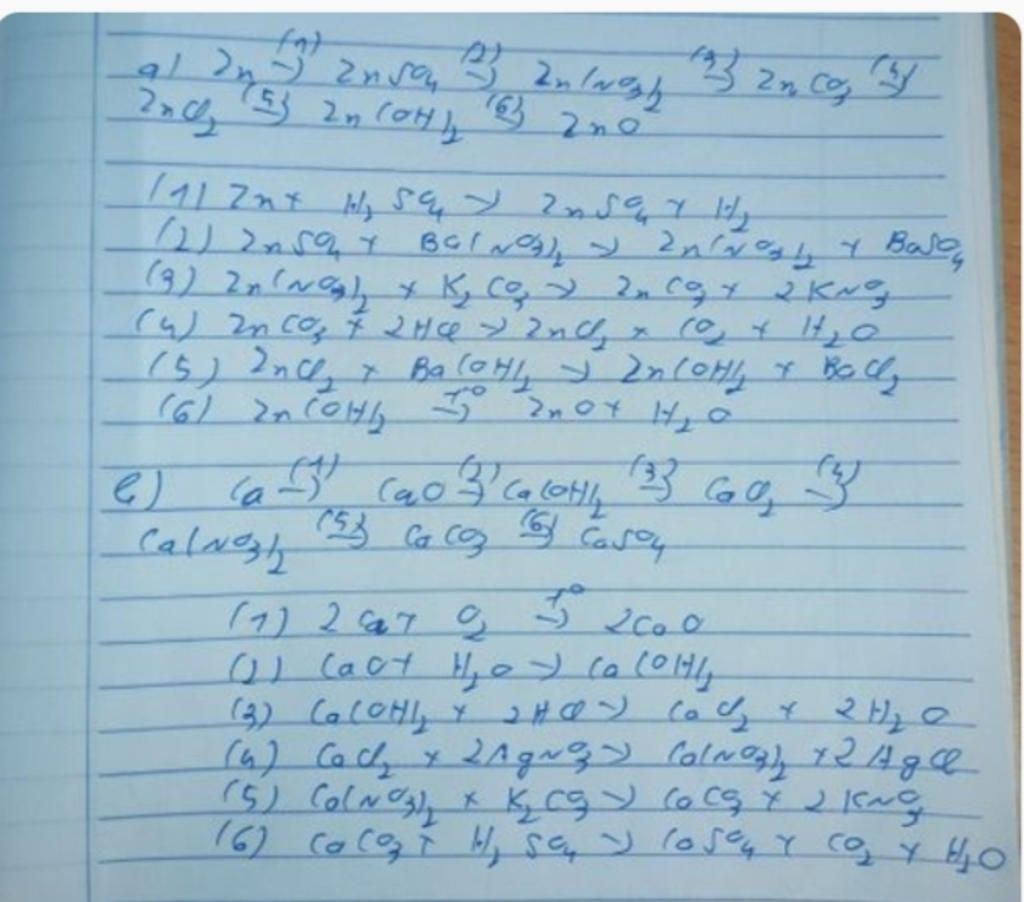 a) Zn (1)→ ZnSO4 (2)→ Zn(NO3)2 (3)→ ZnCO3 (4)→
ZnCl2 (5)→ Zn(OH)2 (6)→ ZnO
(1) Zn + H2SO4 → ZnSO4 + H2
(2) ZnSO4 + Ba(NO3)2 → Zn(NO3)2 + BaSO4
(3) Zn(NO3)2 + K2CO3 → ZnCO3 + 2KNO3
(4) ZnCO3 + 2HCl → ZnCl2 + CO2 + H2O
(5) ZnCl2 + Ba(OH)2 → Zn(OH)2 + BaCl2
(6) Zn(OH)2 t°→ ZnO + H2O
b) Ca (1)→ CaO (2)→ Ca(OH)2 (3)→ CaCl2 (4)→
Ca(NO3)2 (5)→ CaCO3 (6)→ CaSO4
(1) 2Ca + O2 t°→ 2CaO
(2) CaO + H2O → Ca(OH)2
(3) Ca(OH)2 + 2HCl → CaCl2 + 2H2O
(4) CaCl2 + 2AgNO3 → Ca(NO3)2 + 2AgCl
(5) Ca(NO3)2 + K2CO3 → CaCO3 + 2KNO3
(6) CaCO3 + H2SO4 → CaSO4 + CO2 + H2O